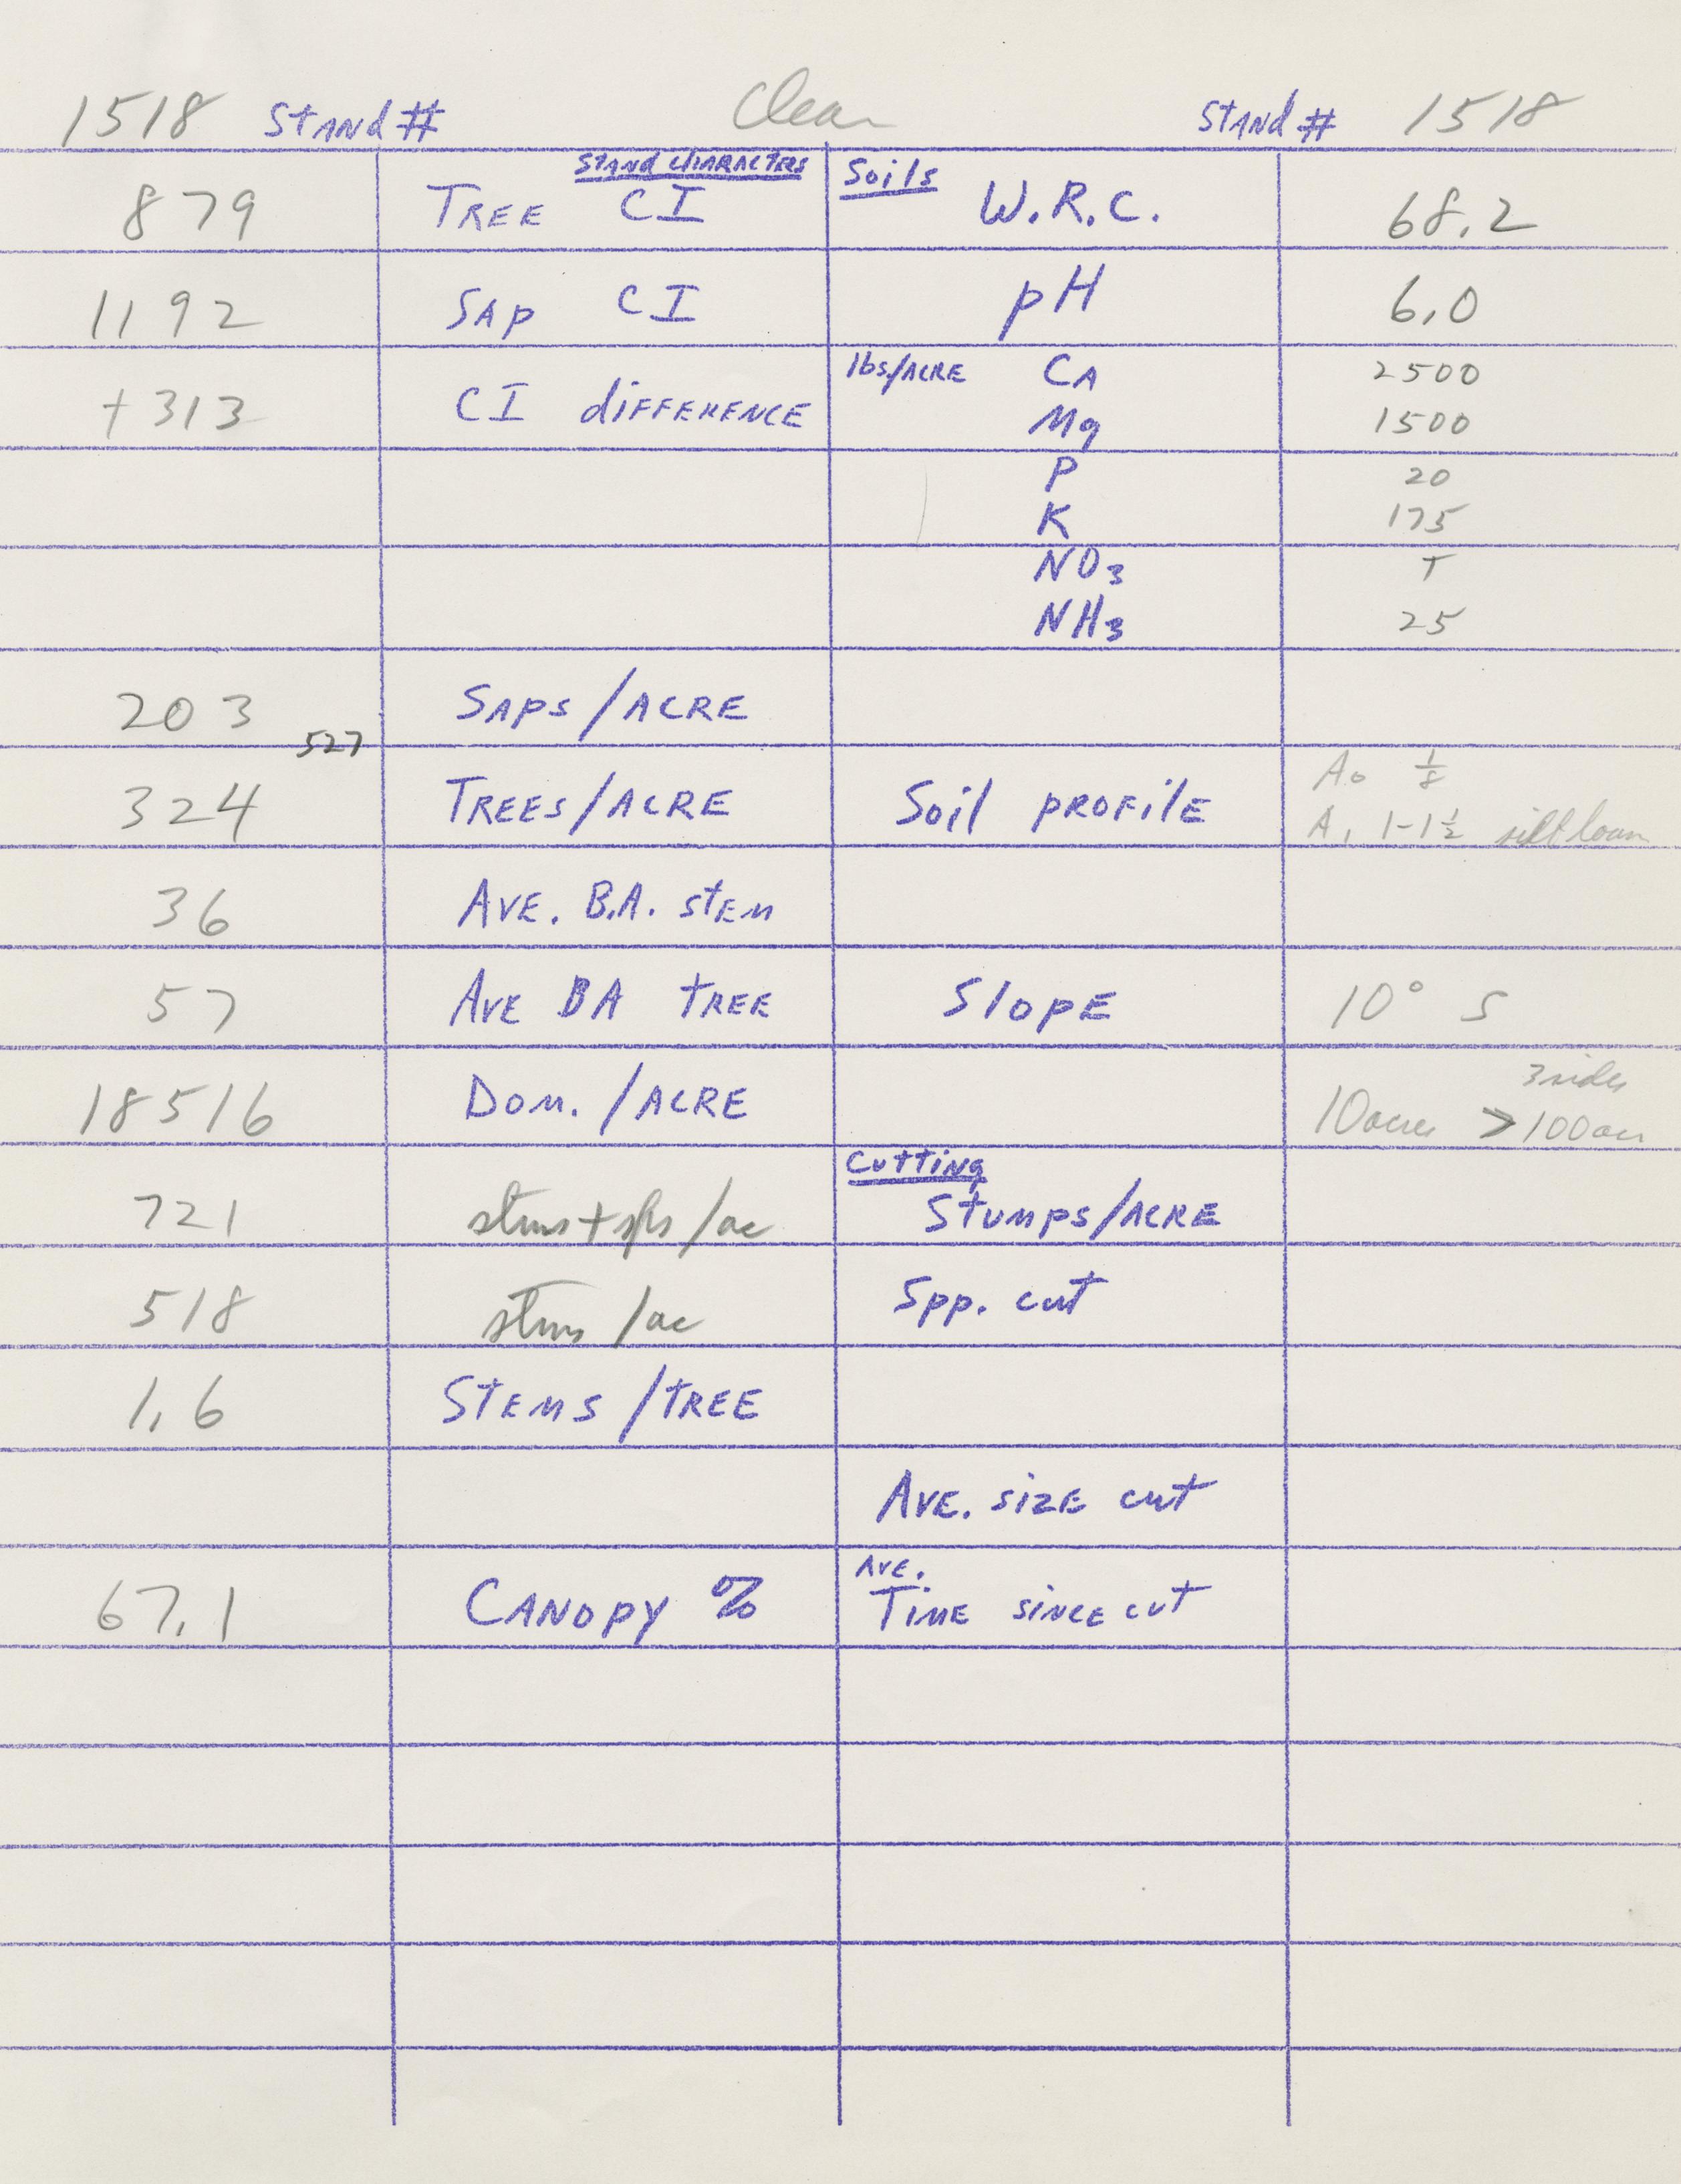 1518 Stand # Clear Stand # 1518
Stand Characters Soils
879 Tree CI W.R.C. 68.2
1192 Sap CI pH 6.0
lbs/Acre Ca 2500
+313 CI difference Mg 1500
P 20
K 175
NO3 T
NH3 25
203 Saps/Acre
527
A0 1/8
324 Trees/Acre Soil profile A1 1-1 1/2 silt loam
36 Ave. B.A. stem
57 Ave BA tree Slope 10° S
3 sides
18516 Dom./Acre 10 acres > 100 acr
Cutting
721 stms + sps/ac Stumps/Acre
518 stms/ac Spp. cut
1.6 Stems/tree
Ave. size cut
Ave.
67.1 Canopy % Time since cut